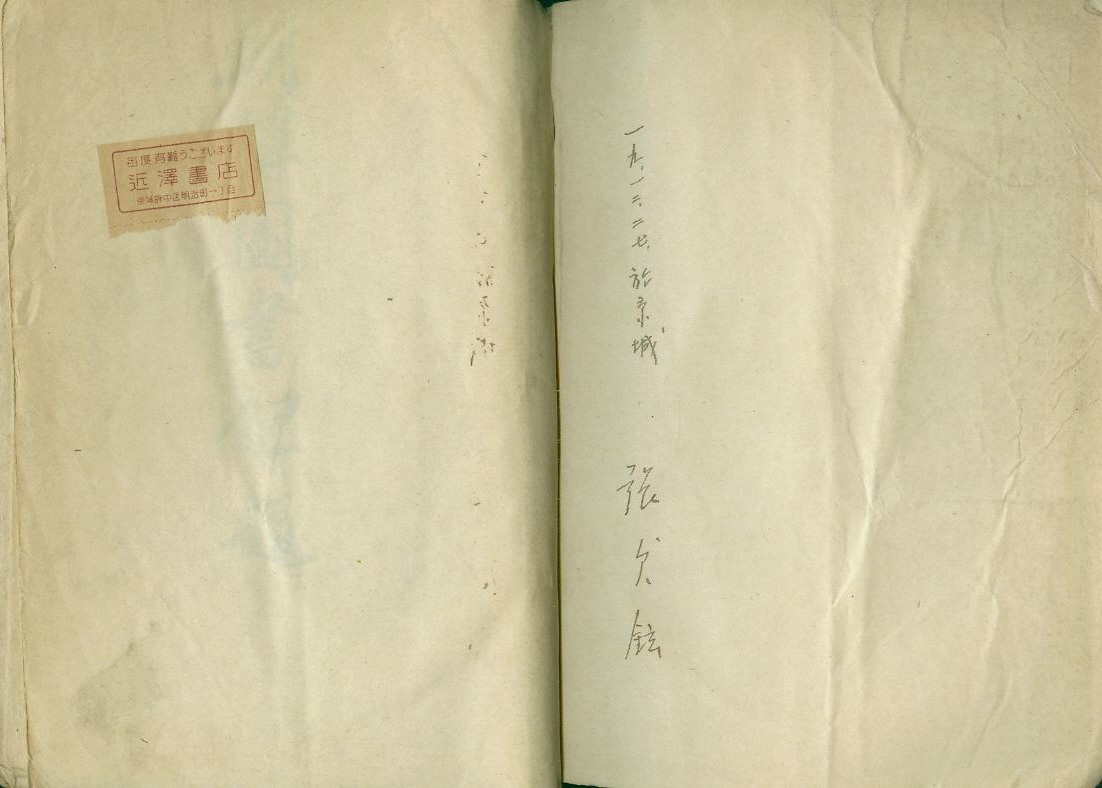 毎度有難うございます
近澤書店
京城府中区明治町一丁目
一九.一二.二七.於京城
張 鉉